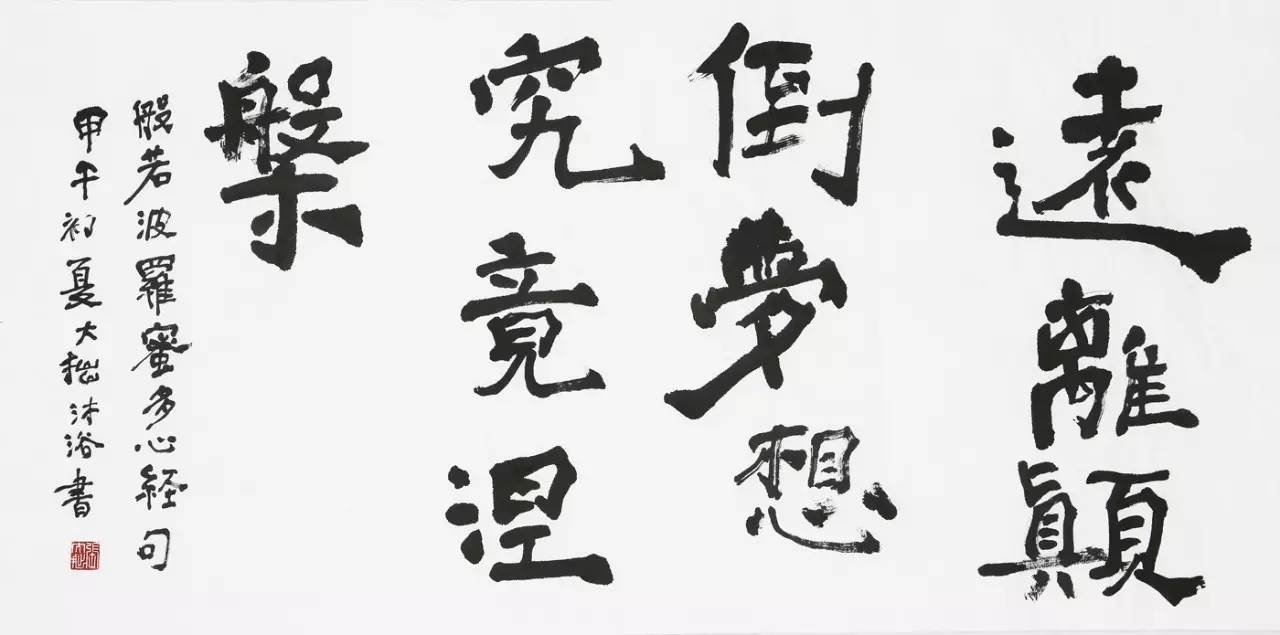 遠離顛
倒夢想
究竟涅
槃
般若波羅蜜多心經句
甲午初夏大拙沐浴書